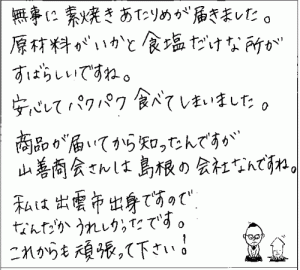 無事に 素焼きあたりめが届きました。
原材料がいかと食塩だけな所が
すばらしいですね。
安心してパクパク食べてしまいました。
商品が届いてから知ったんですが
山善商会さんは島根の会社なんですね。
私は出雲市出身ですので
なんだかうれしかったです。
これからも頑張って下さい！